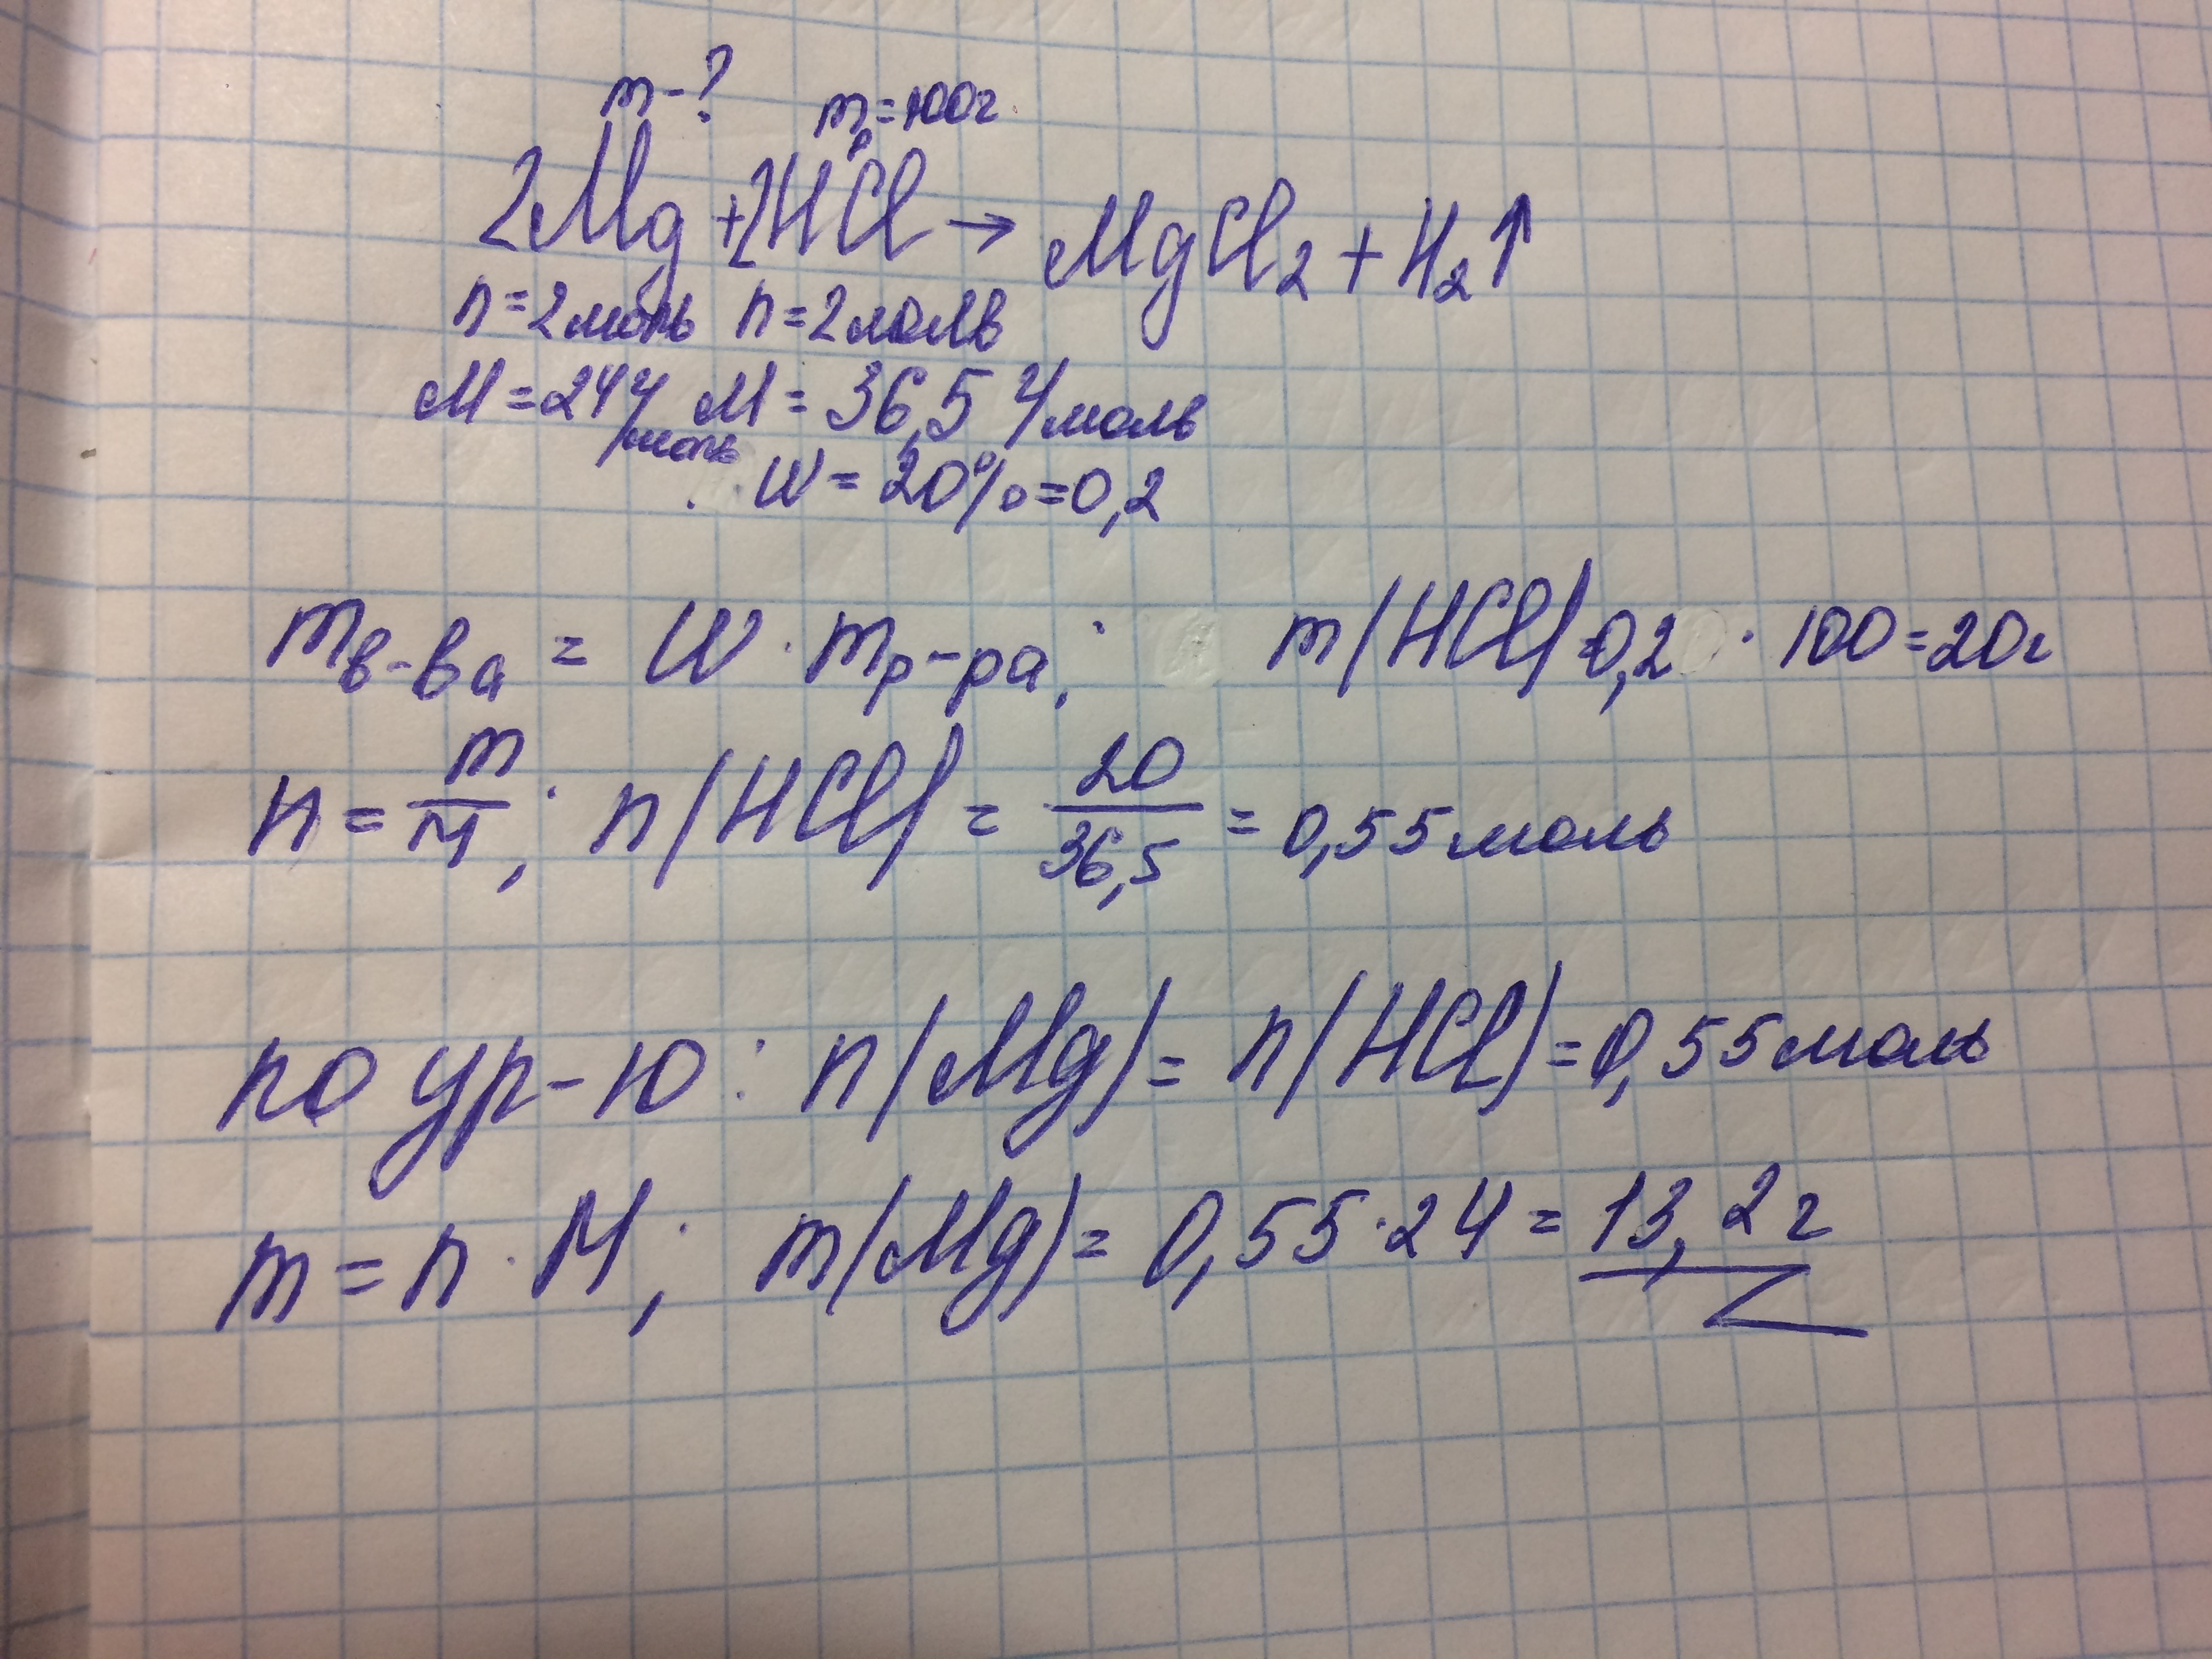 m-? mр=100г
2Mg+2HCl→MgCl₂+H₂↑
n=2моль n=2моль
M=24г/моль M=36,5г/моль
W=20%=0,2
mв-ва = W·mр-ра; m(HCl)=0,2·100=20г
n=m/M; n(HCl)=20/36,5=0,55моль
по ур-ю: n(Mg)=n(HCl)=0,55моль
m=n·M; m(Mg)=0,55·24=13,2г